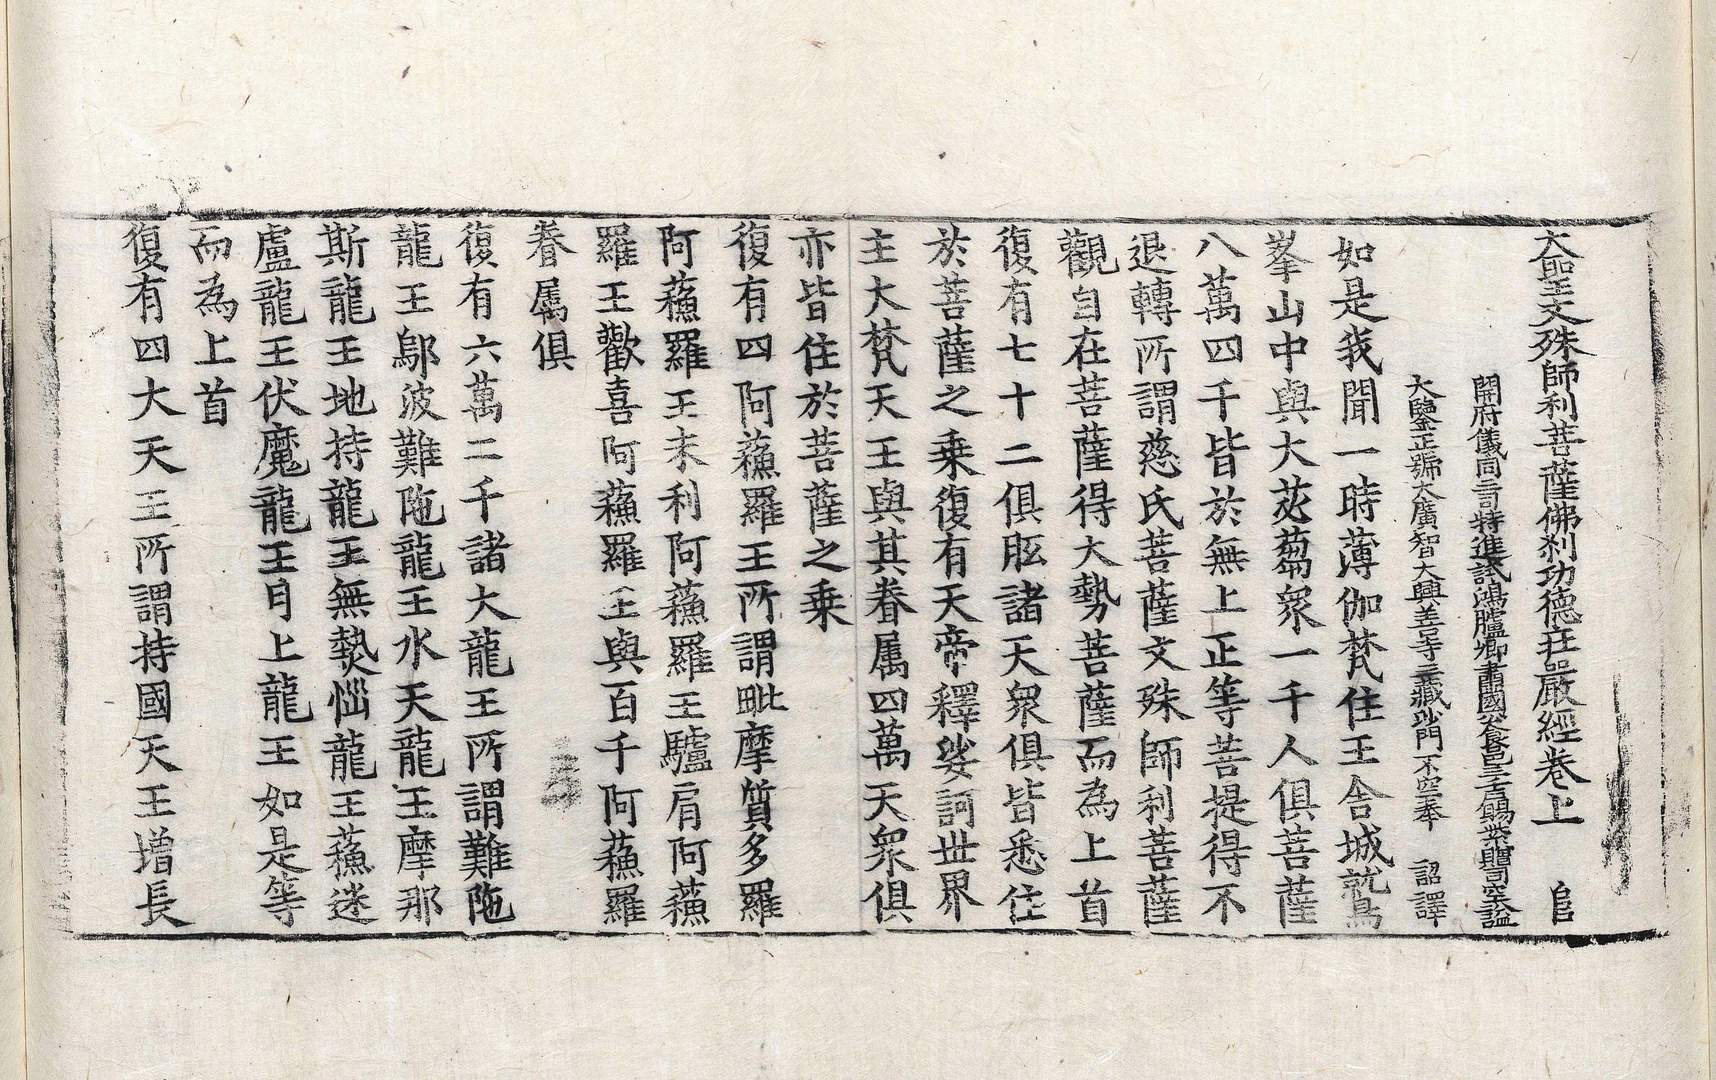 大聖文殊師利菩薩佛刹功德莊嚴經卷上　𨸏
開府儀同三司特進試鴻臚卿肅國公食邑三千戶賜紫贈司空謚
大鑒正號大廣智大興善寺三藏沙門不空奉　詔譯
如是我聞一時薄伽梵住王舍城鷲
峯山中與大苾蒭眾一千人俱菩薩
八萬四千皆於無上正等菩提得不
退轉所謂慈氏菩薩文殊師利菩薩
觀自在菩薩得大勢菩薩而為上首
復有七十二俱胝諸天眾俱皆悉住
於菩薩之乗復有天帝釋娑訶世界
主大梵天王與其眷属四萬天眾俱
亦皆住於菩薩之乗
復有四阿蘓羅王所謂毗摩質多羅
阿蘓羅王末利阿蘓羅王驢肩阿蘓
羅王歡喜阿蘓羅王與百千阿蘓羅
眷属俱
復有六萬二千諸大龍王所謂難陁
龍王鄔波難陁龍王水天龍王摩那
斯龍王地持龍王無熱惱龍王蘓迷
盧龍王伏魔龍王月上龍王如是等
而為上首
復有四大天王所謂持國天王增長